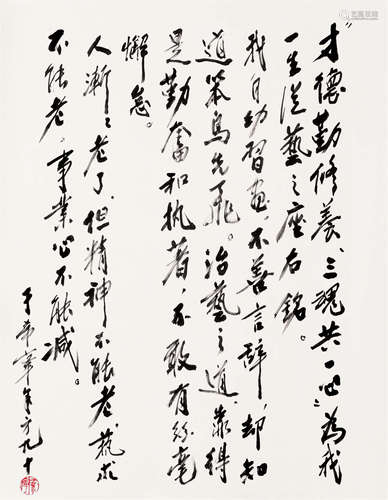 “才德勤修養、三魂共一心”為我
一生從藝之座右銘。
我自幼習畫，不善言辭，却知
道笨鳥先飛。治藝之道，靠得
是勤奮和執著，不敢有絲毫
懈怠。
人漸〻老了，但精神不能老，求
不能老，事業心不能減。
于希寧年方九十